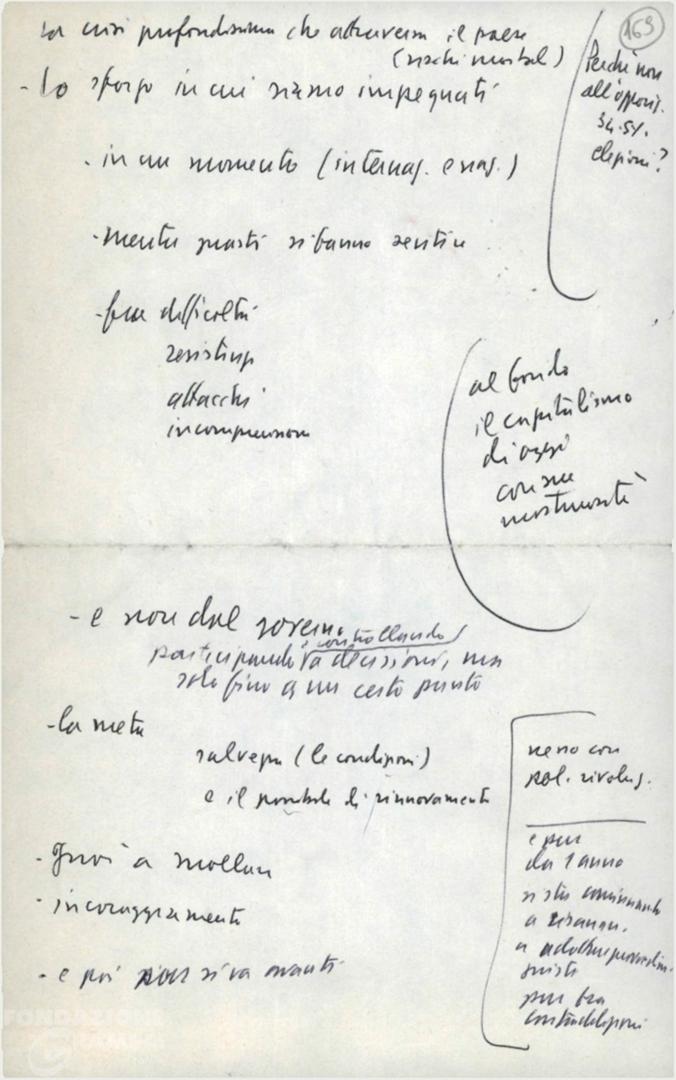 169
La crisi profondissima che attraversa il paese
(rischi mortal)
- Lo sforzo in cui siamo impegnati
Perché non
all'opposiz.
34.5%.
elezioni?
. in un momento (internaz. e naz.)
- mentre questi si fanno sentire
- fra difficoltà
resistenze
attacchi
incomprensioni
al fondo
il capitalismo
di oggi
con sue
mostruosità
- e non dal governo
controllando
participando a decisioni, ma
solo fino a un certo punto
- la meta
salvezza (le condizioni)
e il possibile di rinnovamento
- Guai a mollare
- incoraggiamento
- e poi si va avanti
nesso con
pol. rivoluz.
e pur
da 1 anno
si sta cominciando
a risanare.
a adottare provvedim.
giusti
pur tra
contraddizioni
FONDAZIONE
GRAMSCI